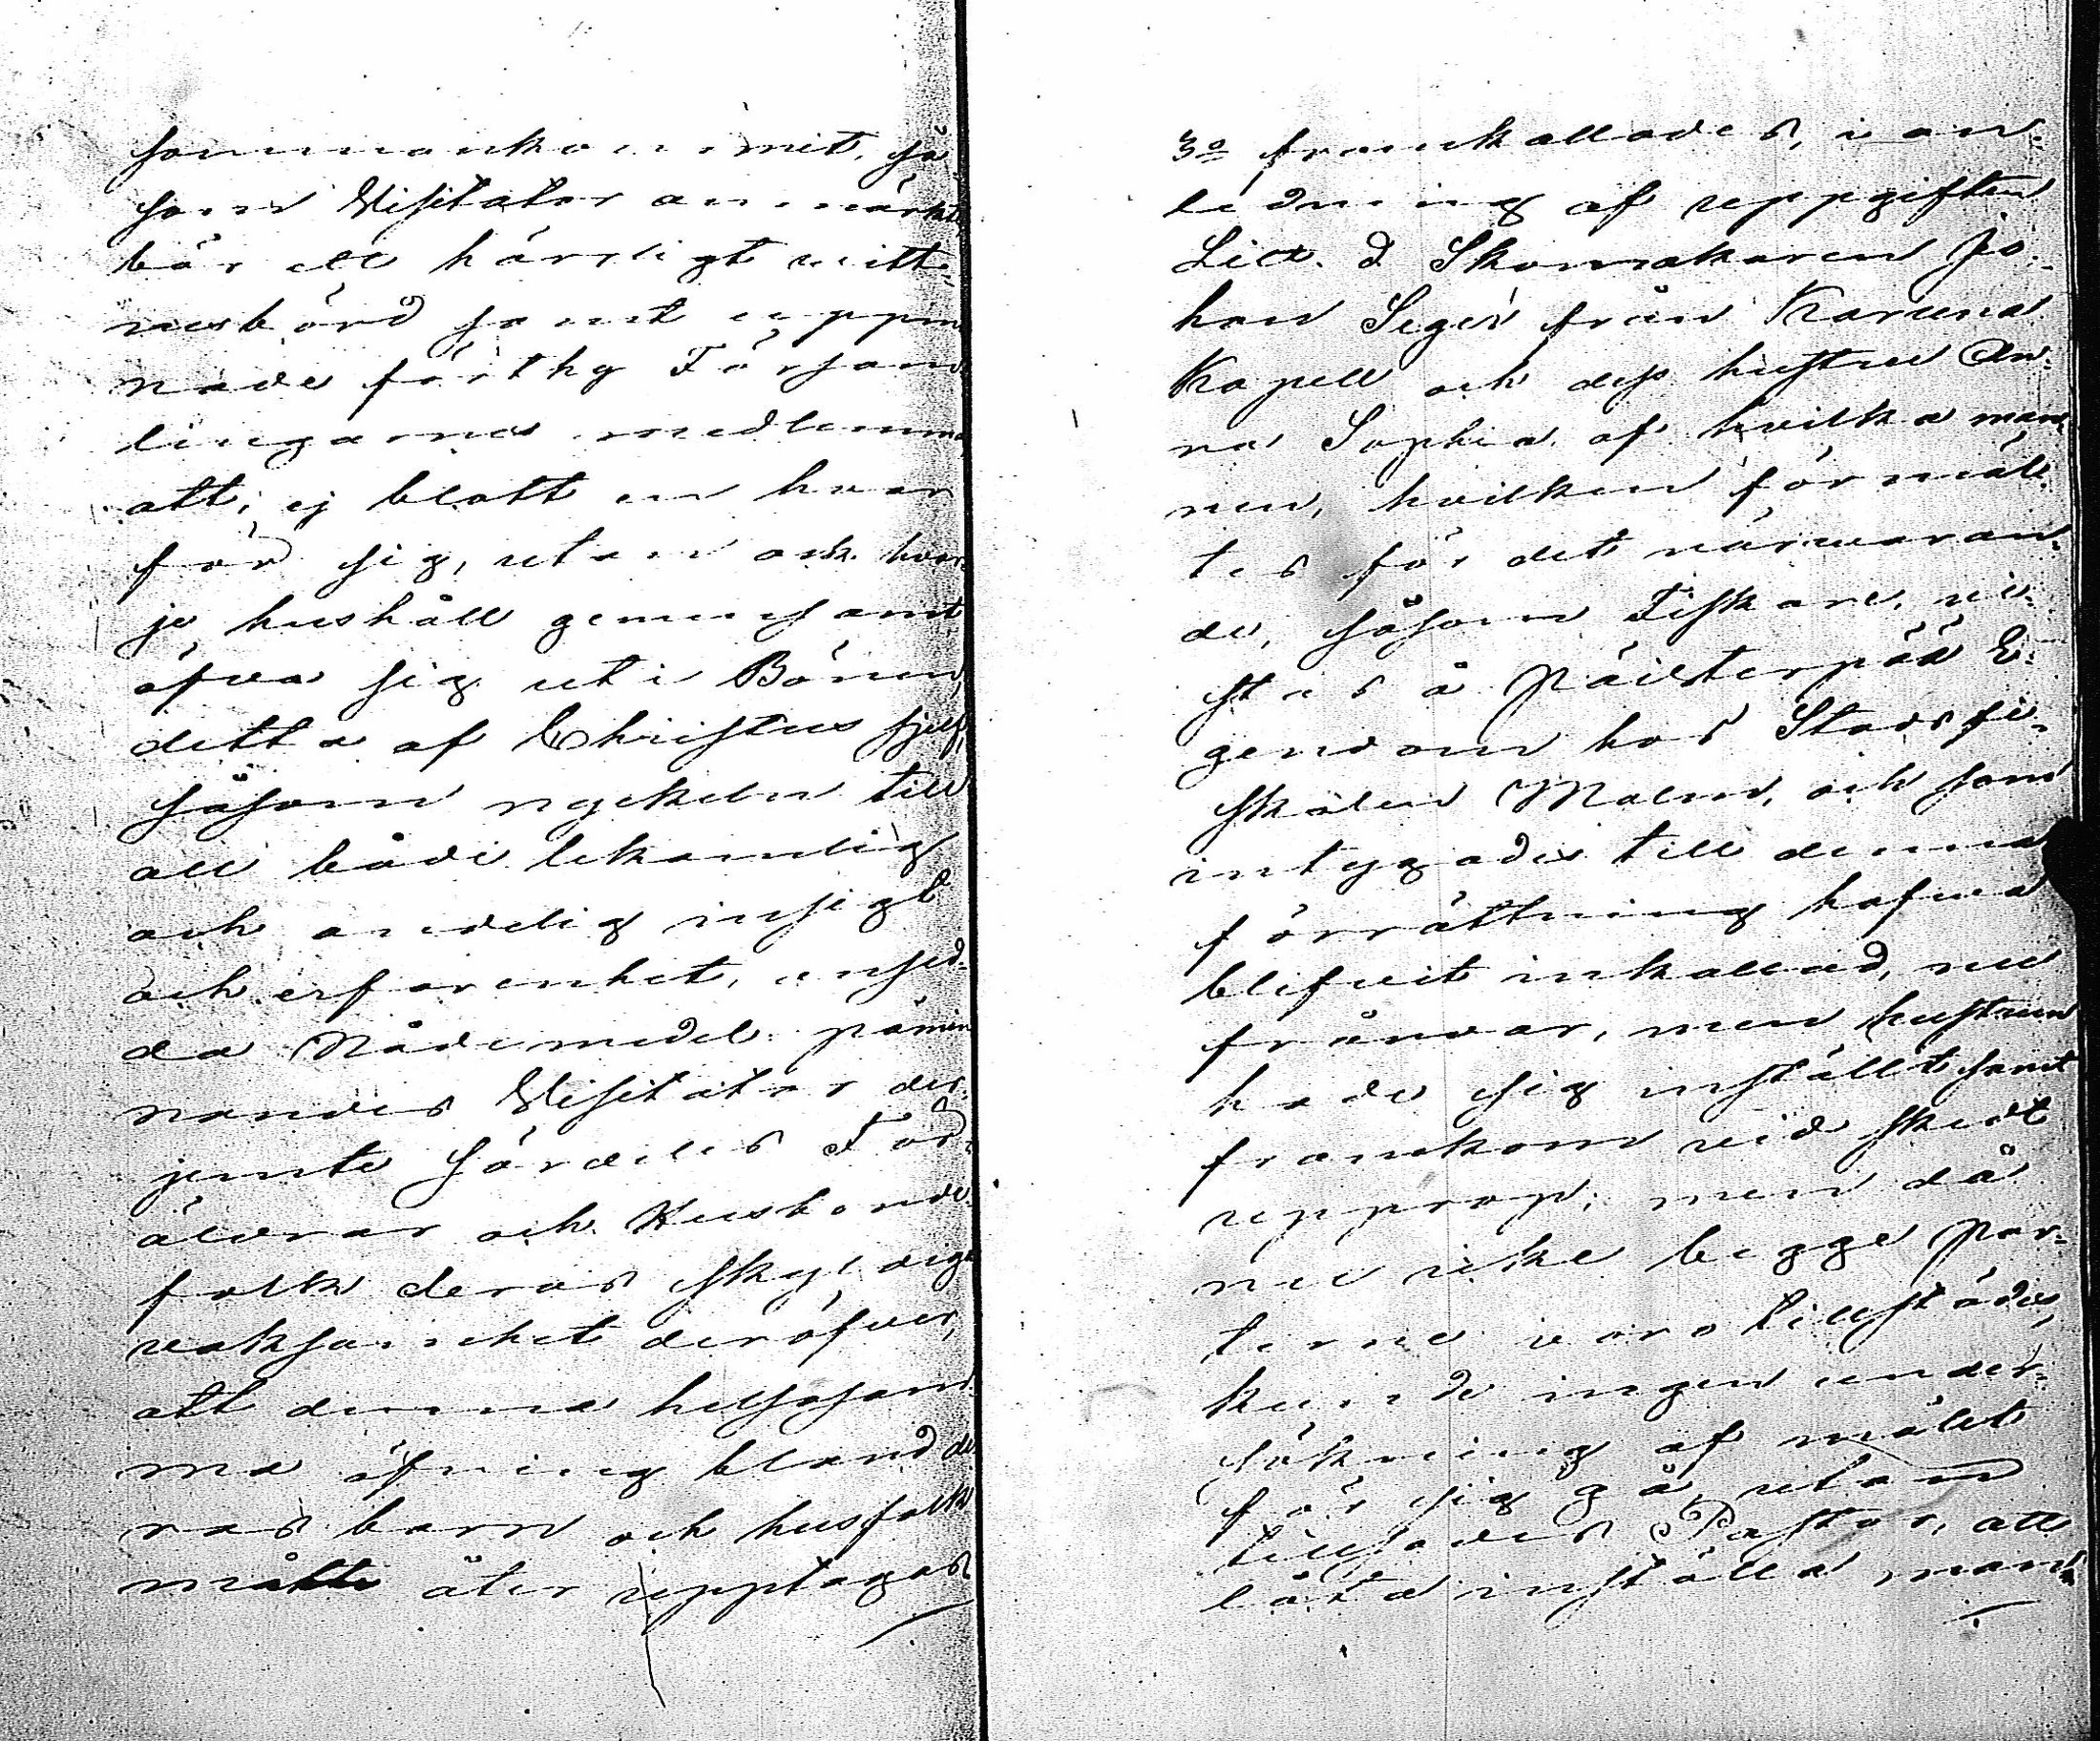 sammankommit, så
som Visitator anmärkte
bär ett härrligt witt=
nesbörd samt uppma
nade förthy Församm
lingarnes medlemma
att, ej blott en hvar
för sig, utan ock hvar
je hushåll gemensamt
öfva sig uti Bönen,
detta af Christus sjelf,
såsom nyckeln till
all både lekamlig
och andelig insigt
och erfarenhet, ansed=
da Nådemedel påmin
nandes Visitator der=
jemte särdeles För=
äldrar och Husbonde
folk deras skyldiga
vaksamhet deröfver,
att denna helsosam
ma öfning bland de
ras barn och husfolk
måtte åter upptagas
3o framkallades, i an=
ledning af uppgiften
Litt. d Skomakaren Jo=
han Seger från Karuna
Kapell och dess hustru An=
na Sophia, af hvilka man
nen, hvilken förmäl=
tes för det närwaran=
de, såsom Fiskare, vi=
stas å Päisterpää E=
gendom hos Stadsfi=
skalen Malm, och som
intygades till denna
förrättning hafwa
blifvit inkallad, nu
frånvar, men hustrun
hade sig inställt samt
framkom vid skedt
upprop; men då
nu icke begge Par=
terne voro tillstädes,
kunde ingen under=
sökning af målet
för sig gå, utan
tillsades Pastor, att
låta inställa man